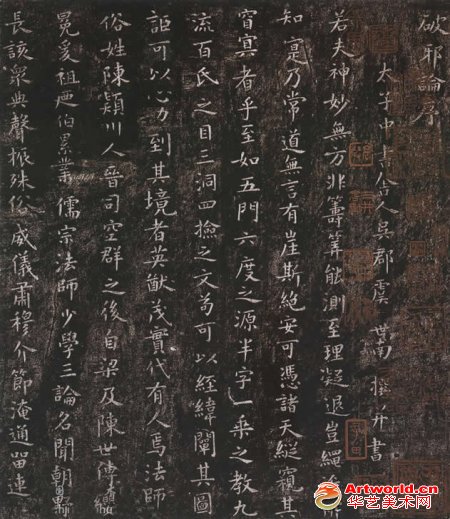 破邪論序
太子中書舍人吳郡虞世南撰并書
若夫神妙無方非籌筭能測至理凝邈豈繩
知寔乃常道無言有崖斯絕安可憑諸天縱窺其
窅冥者乎至如五門六度之源半字一乘之教九
流百氏之目三洞四撿之文苟可以經緯闡其圖
詎可以心力到其境者英猷茂實代有人焉法師
俗姓陳潁川人晉司空群之後自梁及陳世傳
冕爰祖及伯累業儒宗法師少學三論名聞朝野
長該眾典聲振殊俗威儀肅穆介節淹通留連
Artworld.cn
华艺美术网